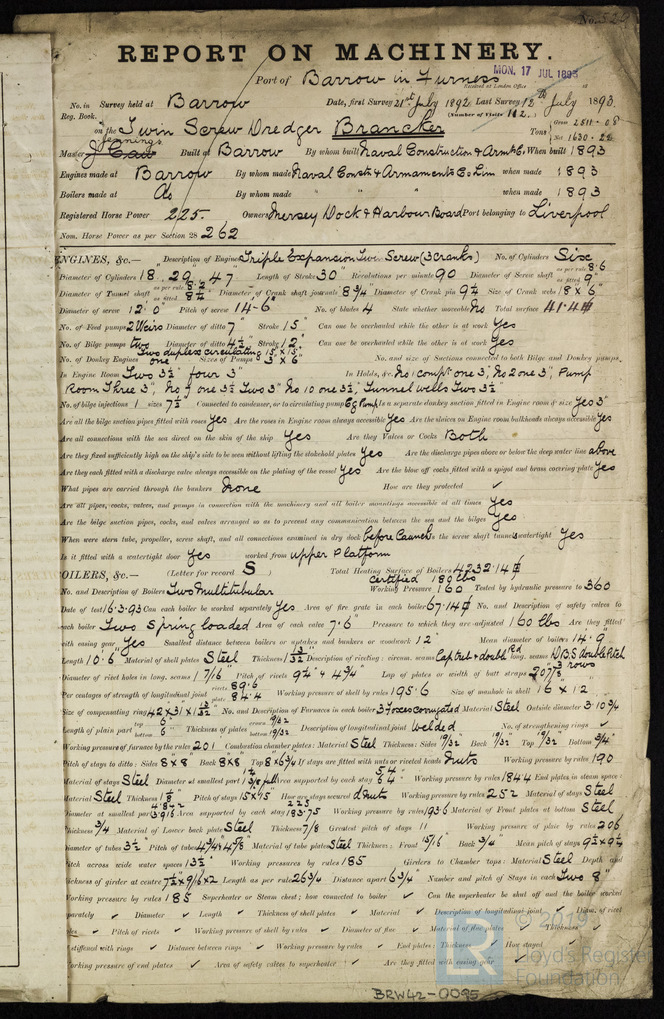 No. 529
REPORT ON MACHINERY.
Port of Barrow in Furness
Received at London Office MON. 17 JUL 1893
No. in Survey held at Barrow Date, first Survey 21st July 1892 Last Survey 12th July 1893
Reg. Book. (Number of Visits 112.)
on the Twin Screw Dredger Brancker Tons Gross 2511.08 Net 1630.22
Master Jennings Built at Barrow By whom built Naval Construction & Armts Co When built 1893
Engines made at Barrow By whom made Naval Constn & Armaments Co Lim when made 1893
Boilers made at Do By whom made " " " when made 1893
Registered Horse Power 225. Owners Mersey Dock & Harbour Board Port belonging to Liverpool
Nom. Horse Power as per Section 28 262
ENGINES, &c.— Description of Engines Triple Expansion Twin Screw (3 cranks) No. of Cylinders Six
Diameter of Cylinders 18, 29, 47" Length of Stroke 30" Revolutions per minute 90 Diameter of Screw shaft as per rule 8.6 as fitted 9"
Diameter of Tunnel shaft as per rule 8.2 as fitted 8 1/4 Diameter of Crank shaft journals 8 3/4 Diameter of Crank pin 9 1/4 Size of Crank webs 18 x 6"
Diameter of screw 12' 0" Pitch of screw 14'-6" No. of blades 4 State whether moveable No Total surface 41.4
No. of Feed pumps 2 Weirs Diameter of ditto 7" Stroke 15" Can one be overhauled while the other is at work Yes
No. of Bilge pumps two Diameter of ditto 4 1/2 Stroke 12" Can one be overhauled while the other is at work Yes
Two duplex circulating 15" x 15"
No. of Donkey Engines one Sizes of Pumps 3 x 6" No. and size of Suctions connected to both Bilge and Donkey pumps
In Engine Room Two 3 1/2" four 3" In Holds, &c. No 1 compt one 3", No 2 one 3", Pump
Room Three 3", No 9 one 3 1/2 Two 3" No 10 one 3 1/2, Tunnel wells Two 3 1/2
No. of bilge injections 1 sizes 7 1/2 Connected to condenser, or to circulating pump Cg Pump Is a separate donkey suction fitted in Engine room & size Yes 3"
Are all the bilge suction pipes fitted with roses Yes Are the roses in Engine room always accessible Yes Are the sluices on Engine room bulkheads always accessible Yes
Are all connections with the sea direct on the skin of the ship Yes Are they Valves or Cocks Both
Are they fixed sufficiently high on the ship's side to be seen without lifting the stokehold plates Yes Are the discharge pipes above or below the deep water line above
Are they each fitted with a discharge valve always accessible on the plating of the vessel Yes Are the blow off cocks fitted with a spigot and brass covering plate Yes
What pipes are carried through the bunkers None How are they protected ✓
Are all pipes, cocks, valves, and pumps in connection with the machinery and all boiler mountings accessible at all times Yes
Are the bilge suction pipes, cocks, and valves arranged so as to prevent any communication between the sea and the bilges Yes
When were stern tube, propeller, screw shaft, and all connections examined in dry dock before launch Is the screw shaft tunnel watertight Yes
Is it fitted with a watertight door Yes worked from upper Platform
BOILERS, &c.— (Letter for record S) Total Heating Surface of Boilers 4232.14
certified 180 lbs
No. and Description of Boilers Two Multitubular Working Pressure 160 Tested by hydraulic pressure to 360
Date of test 16.3.93 Can each boiler be worked separately Yes Area of fire grate in each boiler 67.14 No. and Description of safety valves to
each boiler Two Spring loaded Area of each valve 7.6" Pressure to which they are adjusted 160 lbs Are they fitted
with easing gear Yes Smallest distance between boilers or uptakes and bunkers or woodwork 12" Mean diameter of boilers 14.9
Length 10.6" Material of shell plates Steel Thickness 1 13/32 Description of riveting: circum. seams Lap treb & double Rd long. seams D.B.S double Pitch
Diameter of rivet holes in long. seams 1 7/16 Pitch of rivets 9 1/4 & 4 3/4" Lap of plates or width of butt straps 20 7/8 3 rows
Per centages of strength of longitudinal joint rivets 89.6 plate 84.4 Working pressure of shell by rules 195.6 Size of manhole in shell 16 x 12
Size of compensating ring 42 x 31 x 1 13/32 No. and Description of Furnaces in each boiler 3 Foxes corrugated Material Steel Outside diameter 3.10 3/4
Length of plain part top 6" bottom 6" Thickness of plates crown 9/32 bottom 19/32 Description of longitudinal joint Welded No. of strengthening rings ✓
Working pressure of furnace by the rules 201 Combustion chamber plates: Material Steel Thickness: Sides 19/32" Back 19/32 Top 19/32" Bottom 3/4"
Pitch of stays to ditto: Sides 8 x 8" Back 8 x 8" Top 8 x 6 3/4 If stays are fitted with nuts or riveted heads Nuts Working pressure by rules 190
Material of stays Steel Diameter at smallest part Area supported by each stay 64 Working pressure by rules 184.4 End plates in steam space:
Material Steel Thickness 1 1/8" Pitch of stays 15 x 15" How are stays secured d Nuts Working pressure by rules 252 Material of stays Steel
Diameter at smallest part Area supported by each stay 225 183.75 Working pressure by rules 193.6 Material of Front plates at bottom Steel
Thickness 3/4 Material of Lower back plate Steel Thickness 7/8 Greatest pitch of stays 11 Working pressure of plate by rules 206
Diameter of tubes 3 1/2" Pitch of tubes 4 3/4 x 4 7/8 Material of tube plates Steel Thickness: Front 15/16" Back 3/4" Mean pitch of stays 9 1/2 x 9 1/2
Pitch across wide water spaces 13 1/2" Working pressures by rules 185 Girders to Chamber tops: Material Steel Depth and
thickness of girder at centre 7 1/2 x 9/16 x 2 Length as per rule 26 3/4 Distance apart 6 3/4" Number and pitch of Stays in each Two 8"
Working pressure by rules 185 Superheater or Steam chest; how connected to boiler ✓ Can the superheater be shut off and the boiler worked
separately ✓ Diameter ✓ Length ✓ Thickness of shell plates ✓ Material ✓ Description of longitudinal joint ✓ Diam. of rivet
holes ✓ Pitch of rivets ✓ Working pressure of shell by rules ✓ Diameter of flue ✓ Material of flue plates ✓ Thickness ✓
If stiffened with rings ✓ Distance between rings ✓ Working pressure by rules ✓ End plates: Thickness ✓ How stayed
Working pressure of end plates ✓ Area of safety valves to superheater ✓ Are they fitted with easing gear ✓
© 2019
Lloyd's Register
Foundation
BRW42-0095